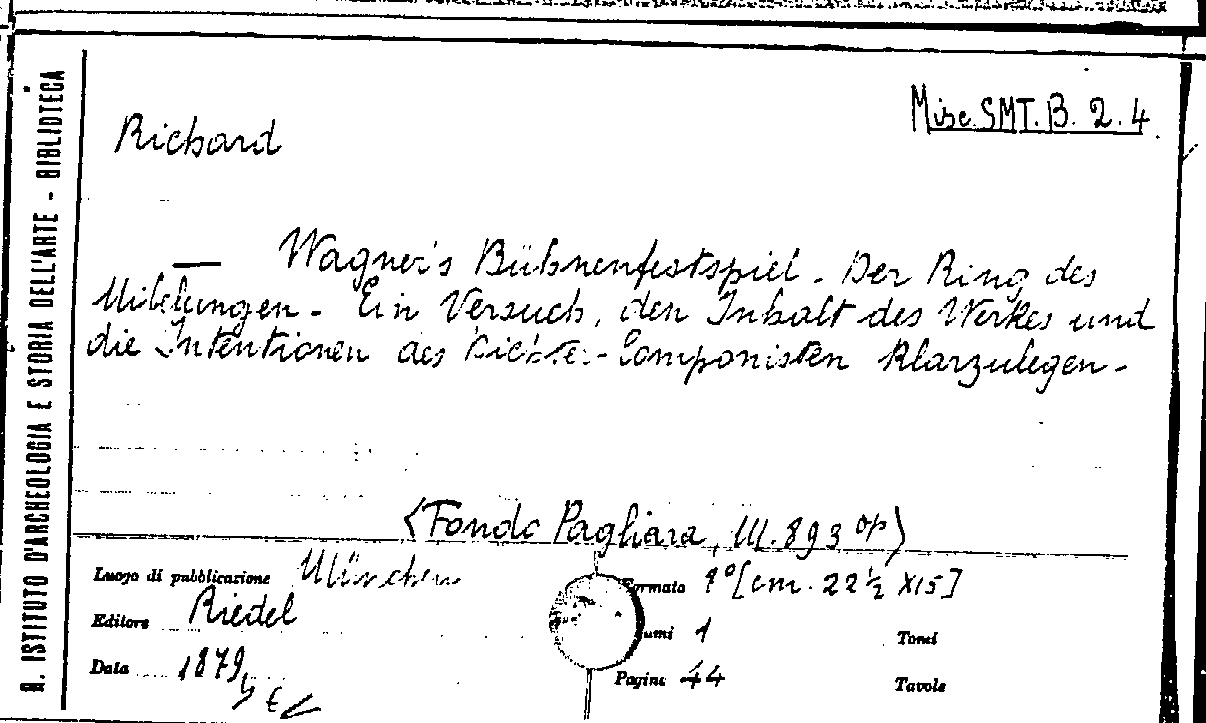 R. ISTITUTO D'ARCHEOLOGIA E STORIA DELL'ARTE - BIBLIOTECA
Misc. SMT. B. 2. 4.
Richard
— Wagner's Bühnenfestspiel. Der Ring des
Nibelungen - Ein Versuch, den Inhalt des Werkes und
die Intentionen des Dichter-Componisten klarzulegen -
(Fondo Pagliara, III. 893 op)
Luogo di pubblicazione München
Formato 8° [cm. 22 ½ X15]
Editore Riedel
umi 1 Tomi
Data 1879
Pagine 44 Tavole